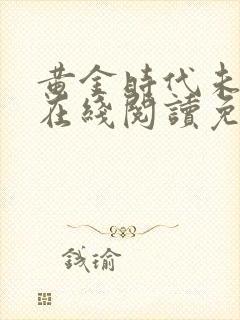 黄金時代未
在綫閱讀免
錢瑜